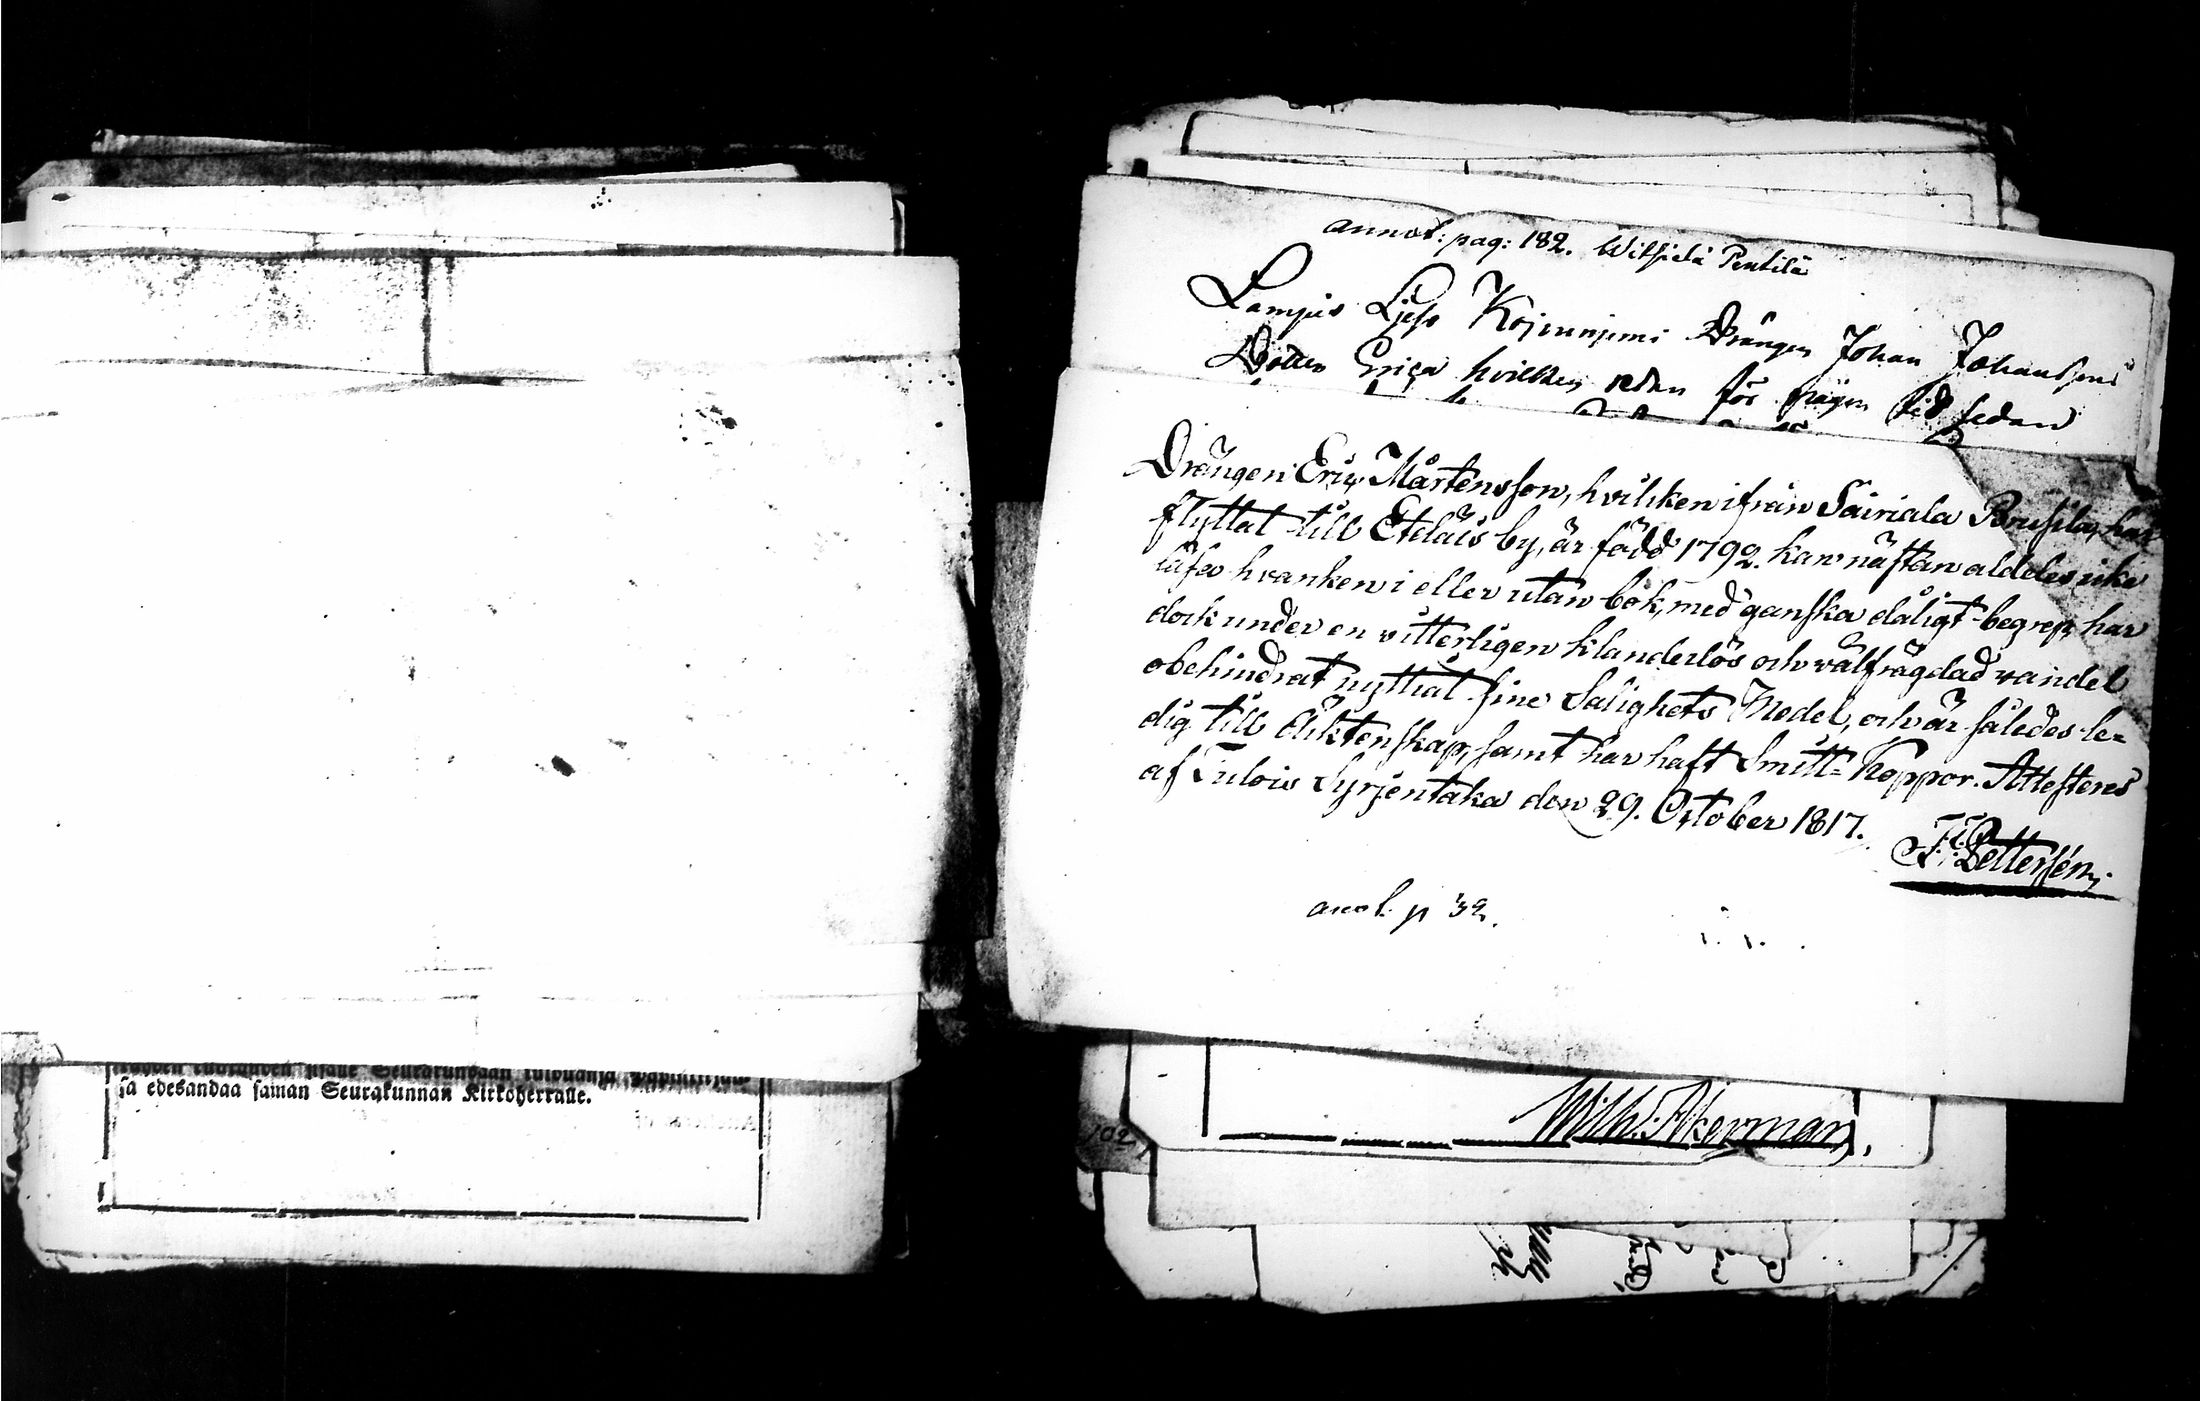 sa edesandaa saman Seurakunnan Kirkoherralle.
annot: pag: 182. Witsiälä Pentilä
Lampis Ljeso Drängen Johan Johanssons
Dotter Erica hvilken redan för någon tid sedan
Drängen Eric Mårtensson, hvilken ifrån Sairiala Prusila, har
flyttat till Eteläis by, är född 1792. kan nästan aldeles icke
läsa hvarken i eller utan bok, med ganska dåligt begrep, har
dock under en vitterligen klanderlös och välfrägdad vandel
obehindrat nyttiat sine Salighets Medel, och är således le=
dig till Äktenskap, samt har haft Smitt=Koppor. Attesteres
af Tulois Syrjentaka den 29. October 1817.
F. H. Petterssén
anot. p 32.
Wilh. Åkerman.
102